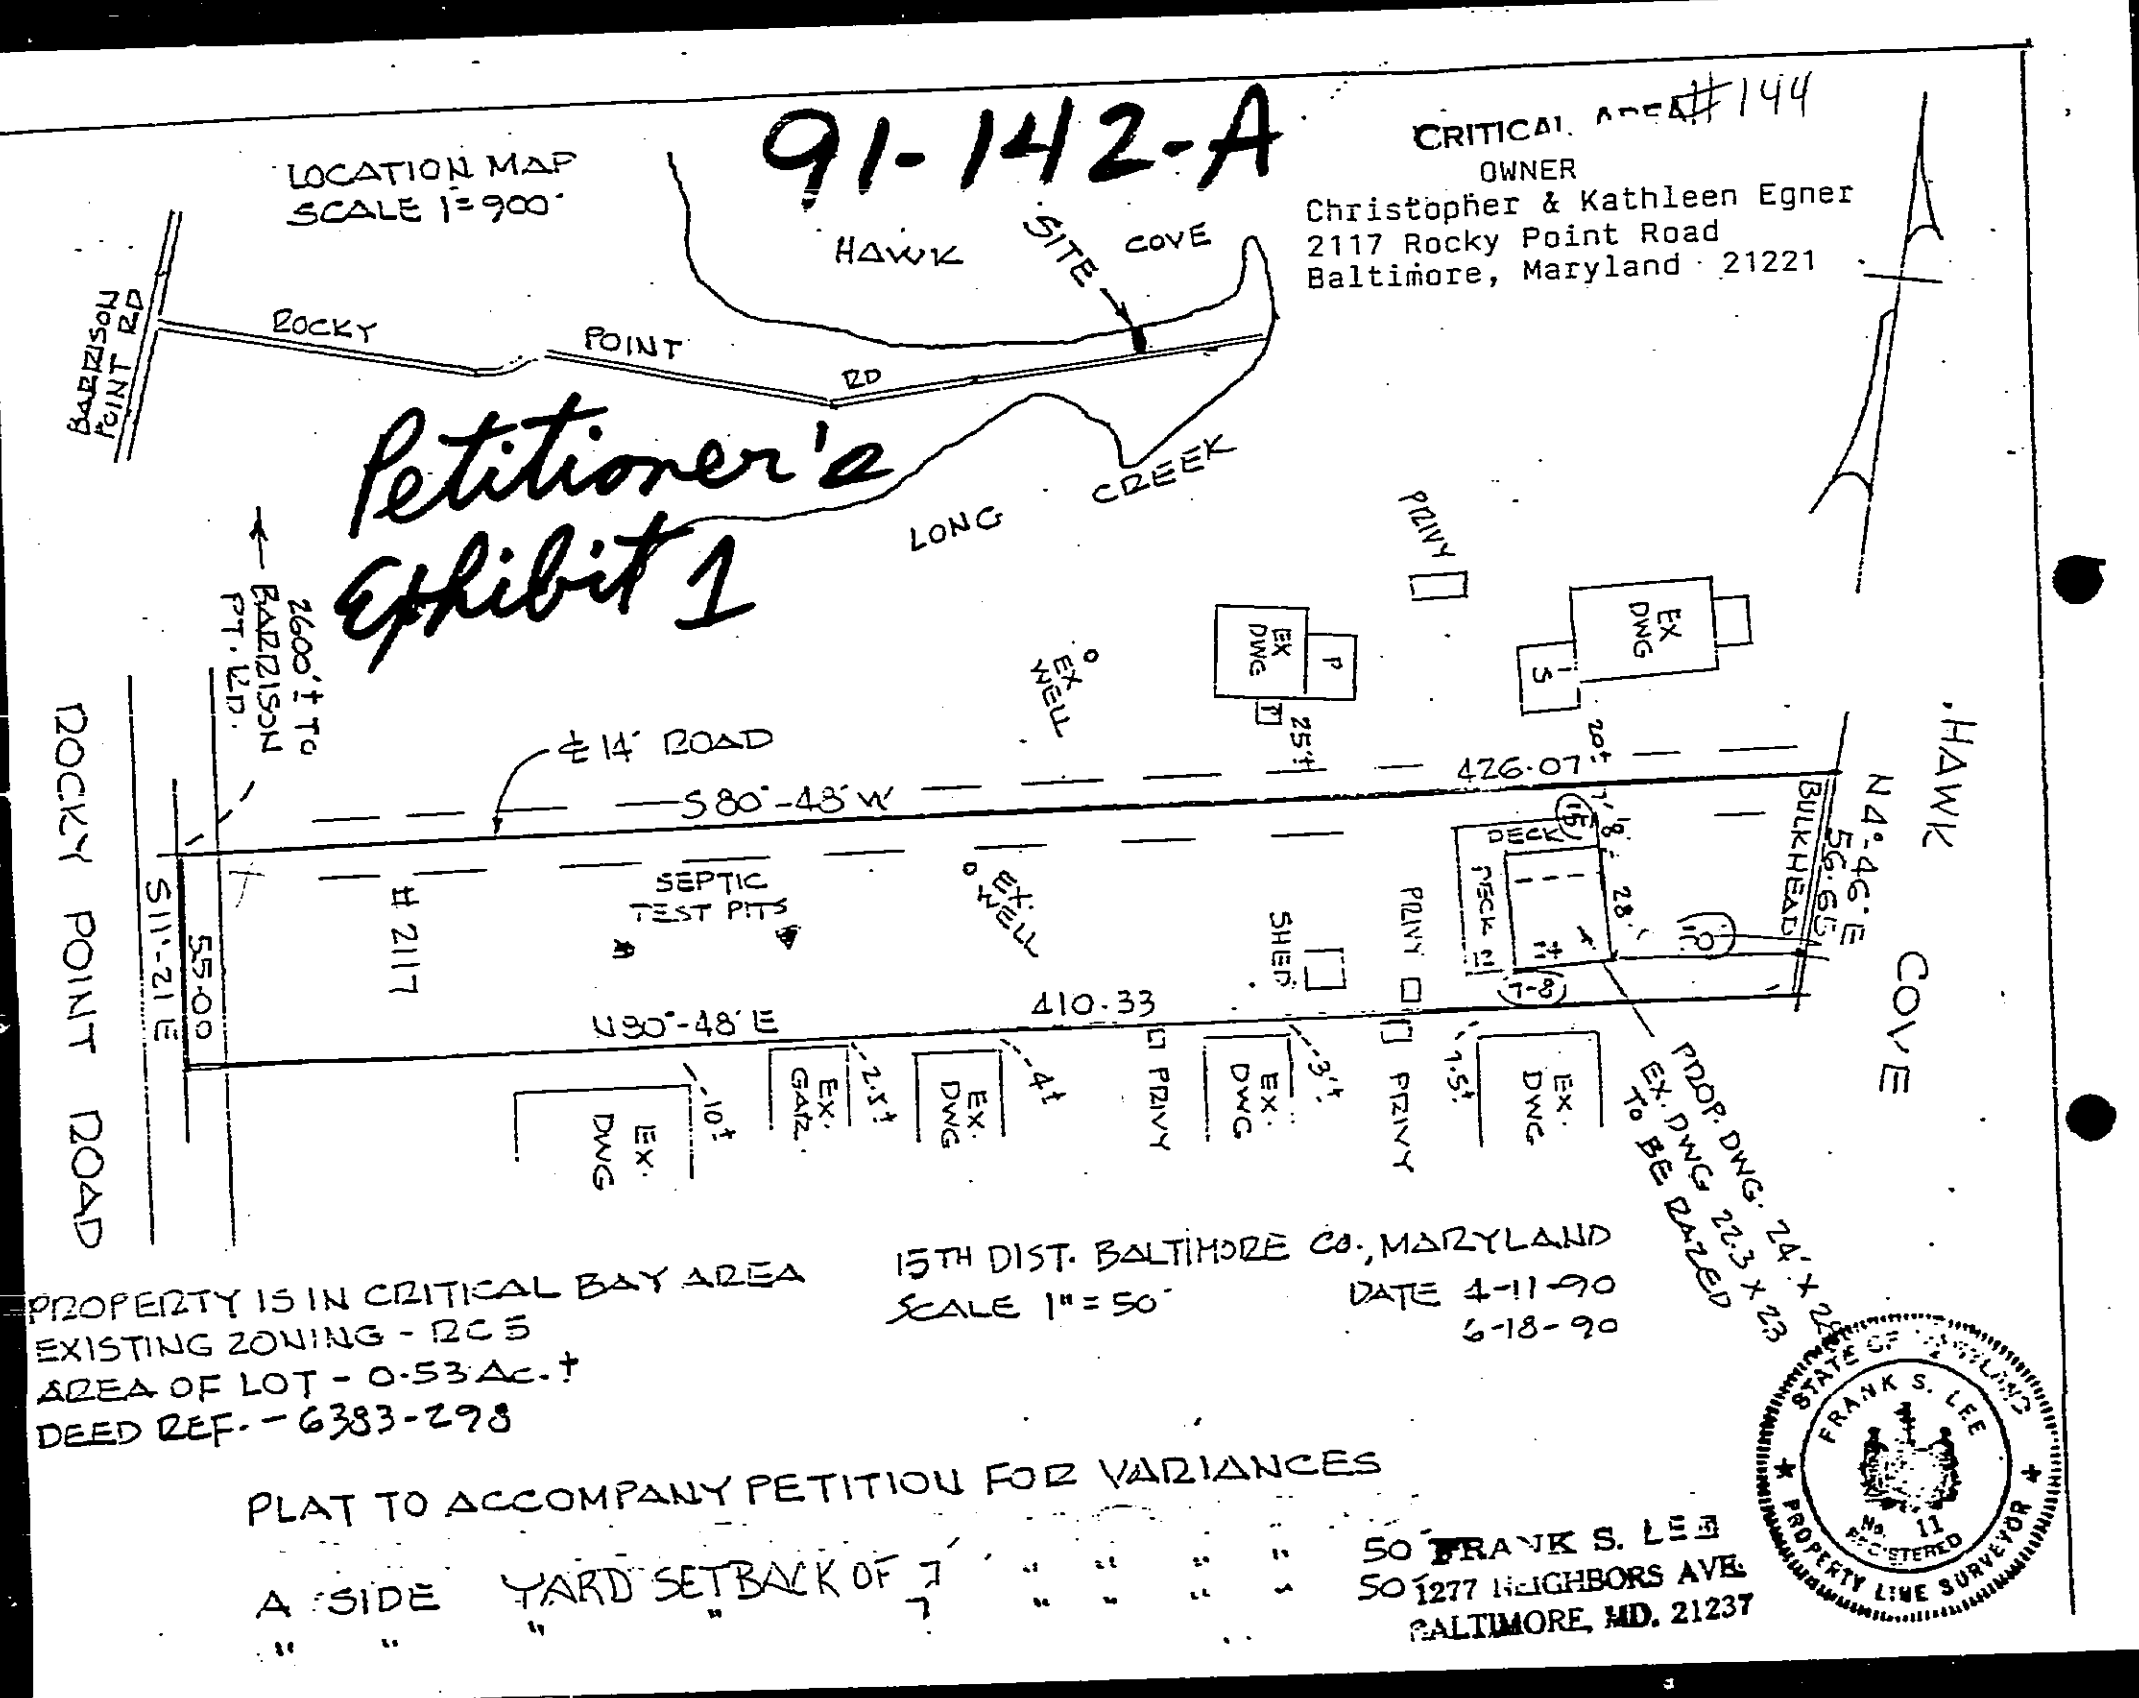 91-142-A
CRITICAL AREA #144
OWNER
Christopher & Kathleen Egner
2117 Rocky Point Road
Baltimore, Maryland 21221
LOCATION MAP
SCALE 1"=900'
HAWK COVE
SITE
BARRISON
POINT RD
ROCKY POINT RD
LONG CREEK
Petitioner's
Exhibit 1
2600'± TO
BARRISON
PT. RD.
PRIVY
EX
DWG
P
EX
DWG
S
EX
WELL
25'±
20'±
¢ 14' ROAD
S80°-48'W
426.07
HAWK COVE
N4°-46'E
56.65
BULKHEAD
ROCKY POINT ROAD
S11°-21'E
55.00
# 2117
SEPTIC
TEST PITS
EX.
WELL
SHED
PRIVY
DECK
DECK
15
28'
7-8
N80°-48'E
410.33
EX.
DWG
10'±
EX.
GAR.
2.5'±
EX.
DWG
4'±
PRIVY
EX.
DWG
3'±
PRIVY
7.5'±
EX.
DWG
PROP. DWG. 24' x 28'
EX. DWG 22.3 x 23
TO BE RAZED
PROPERTY IS IN CRITICAL BAY AREA
EXISTING ZONING - RC5
AREA OF LOT - 0.53 Ac. ±
DEED REF. - 6383-298
15TH DIST. BALTIMORE CO., MARYLAND
SCALE 1" = 50'
DATE 4-11-90
6-18-90
PLAT TO ACCOMPANY PETITION FOR VARIANCES
A SIDE YARD SETBACK OF 7' " " " " 50'
" " " " 7 " " " " 50'
FRANK S. LEE
1277 NEIGHBORS AVE.
BALTIMORE, MD. 21237
STATE OF MARYLAND
FRANK S. LEE
No. 11
REGISTERED
PROPERTY LINE SURVEYOR